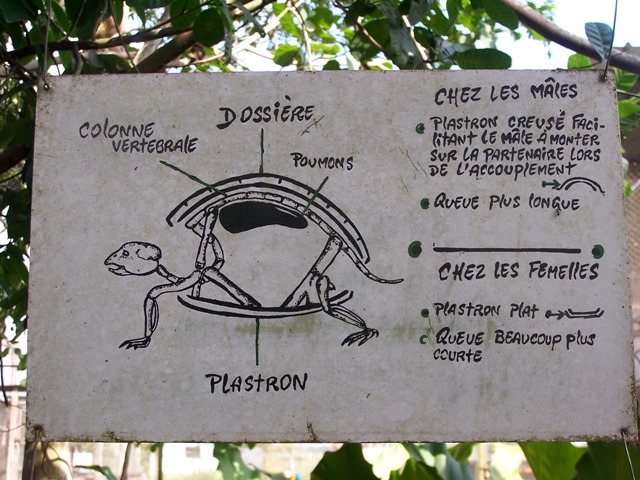 DOSSIÈRE
COLONNE
VERTEBRALE
POUMONS
PLASTRON
CHEZ LES MÂLES
PLASTRON CREUSÉ FACI-
LITANT LE MÂLE À MONTER
SUR LA PARTENAIRE LORS
DE L'ACCOUPLEMENT
QUEUE PLUS LONGUE
CHEZ LES FEMELLES
PLASTRON PLAT
QUEUE BEAUCOUP PLUS
COURTE